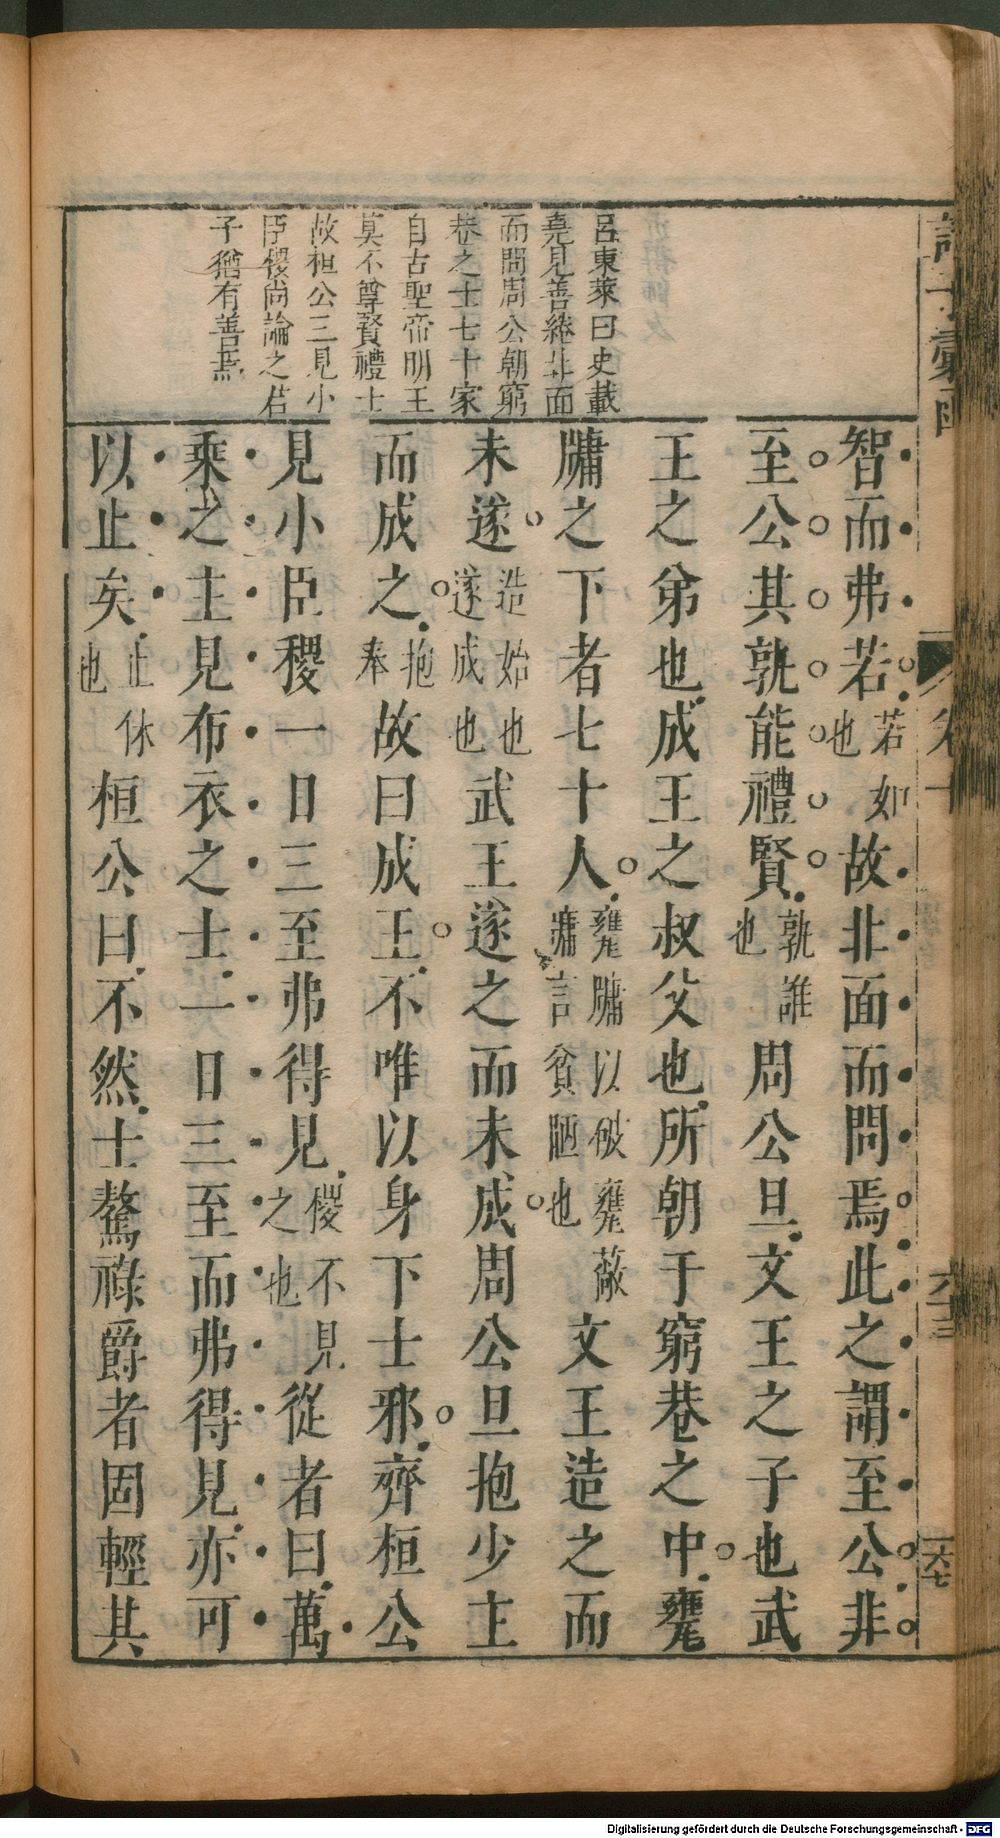 呂東萊曰史載
堯見善綣北面
而問周公朝窮
巷之士七十家
自古聖帝明王
莫不尊賢禮士
故桓公三見小
臣稷尚論之君
子猶有善焉
智而弗若若如也故北面而問焉此之謂至公非
至公其孰能禮賢孰誰也周公旦文王之子也武
王之弟也成王之叔父也所朝于窮巷之中甕
牖之下者七十人甕牖以破甕蔽牖言貧陋也文王造之而
未遂造始也遂成也武王遂之而未成周公旦抱少主
而成之抱奉故曰成王不唯以身下士邪齊桓公
見小臣稷一日三至弗得見稷不見之也從者曰萬
乘之主見布衣之士一日三至而弗得見亦可
以止矣止休也桓公曰不然士驁祿爵者固輕其
卷十
六十三
一六七
Digitalisierung gefördert durch die Deutsche Forschungsgemeinschaft - DFG